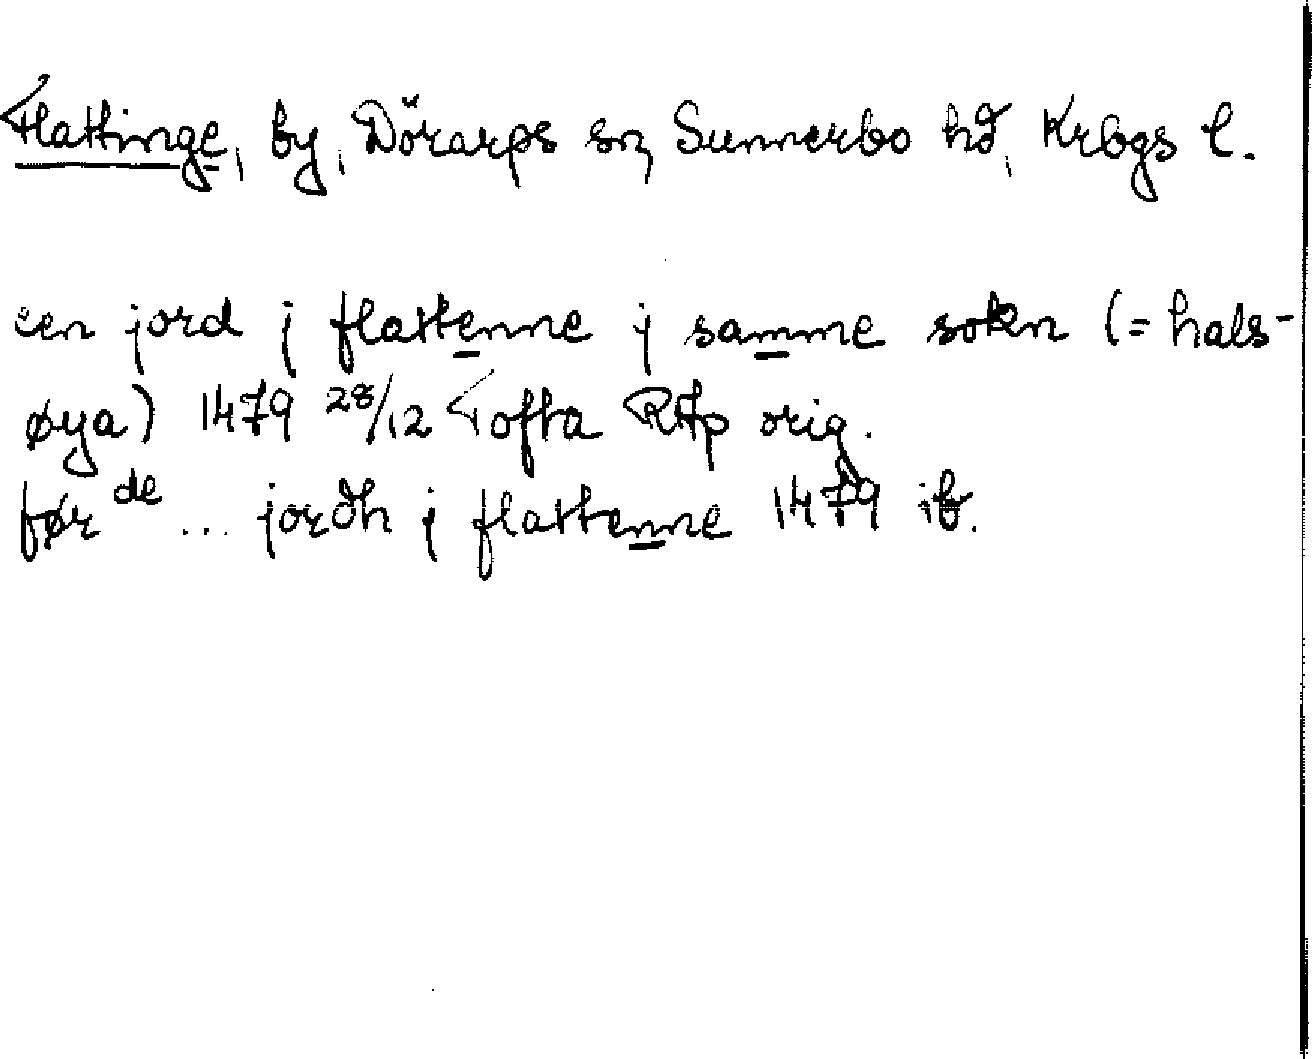 Flattinge, by, Dörarps sn, Sunnerbo hd, Krbgs l.
een jord j flattenne j samme sokn (= hals-
øya) 1479 28/12 Tofta RAp orig.
før de ... jordh j flattenne 1479 ib.